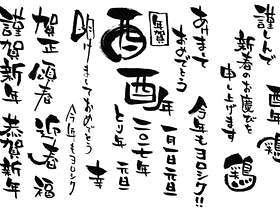 謹しんで
新春のお慶びを
申し上げます
酉年
鶏
鶏
あけまして
おめでとう
今年もヨロシク!!
年賀
酉
酉年
一月一日元旦
二〇一七年
とり年 元旦
明けましておめでとう
今年もヨロシク
幸
賀正
頌春
迎春
福
謹賀新年
恭賀新年